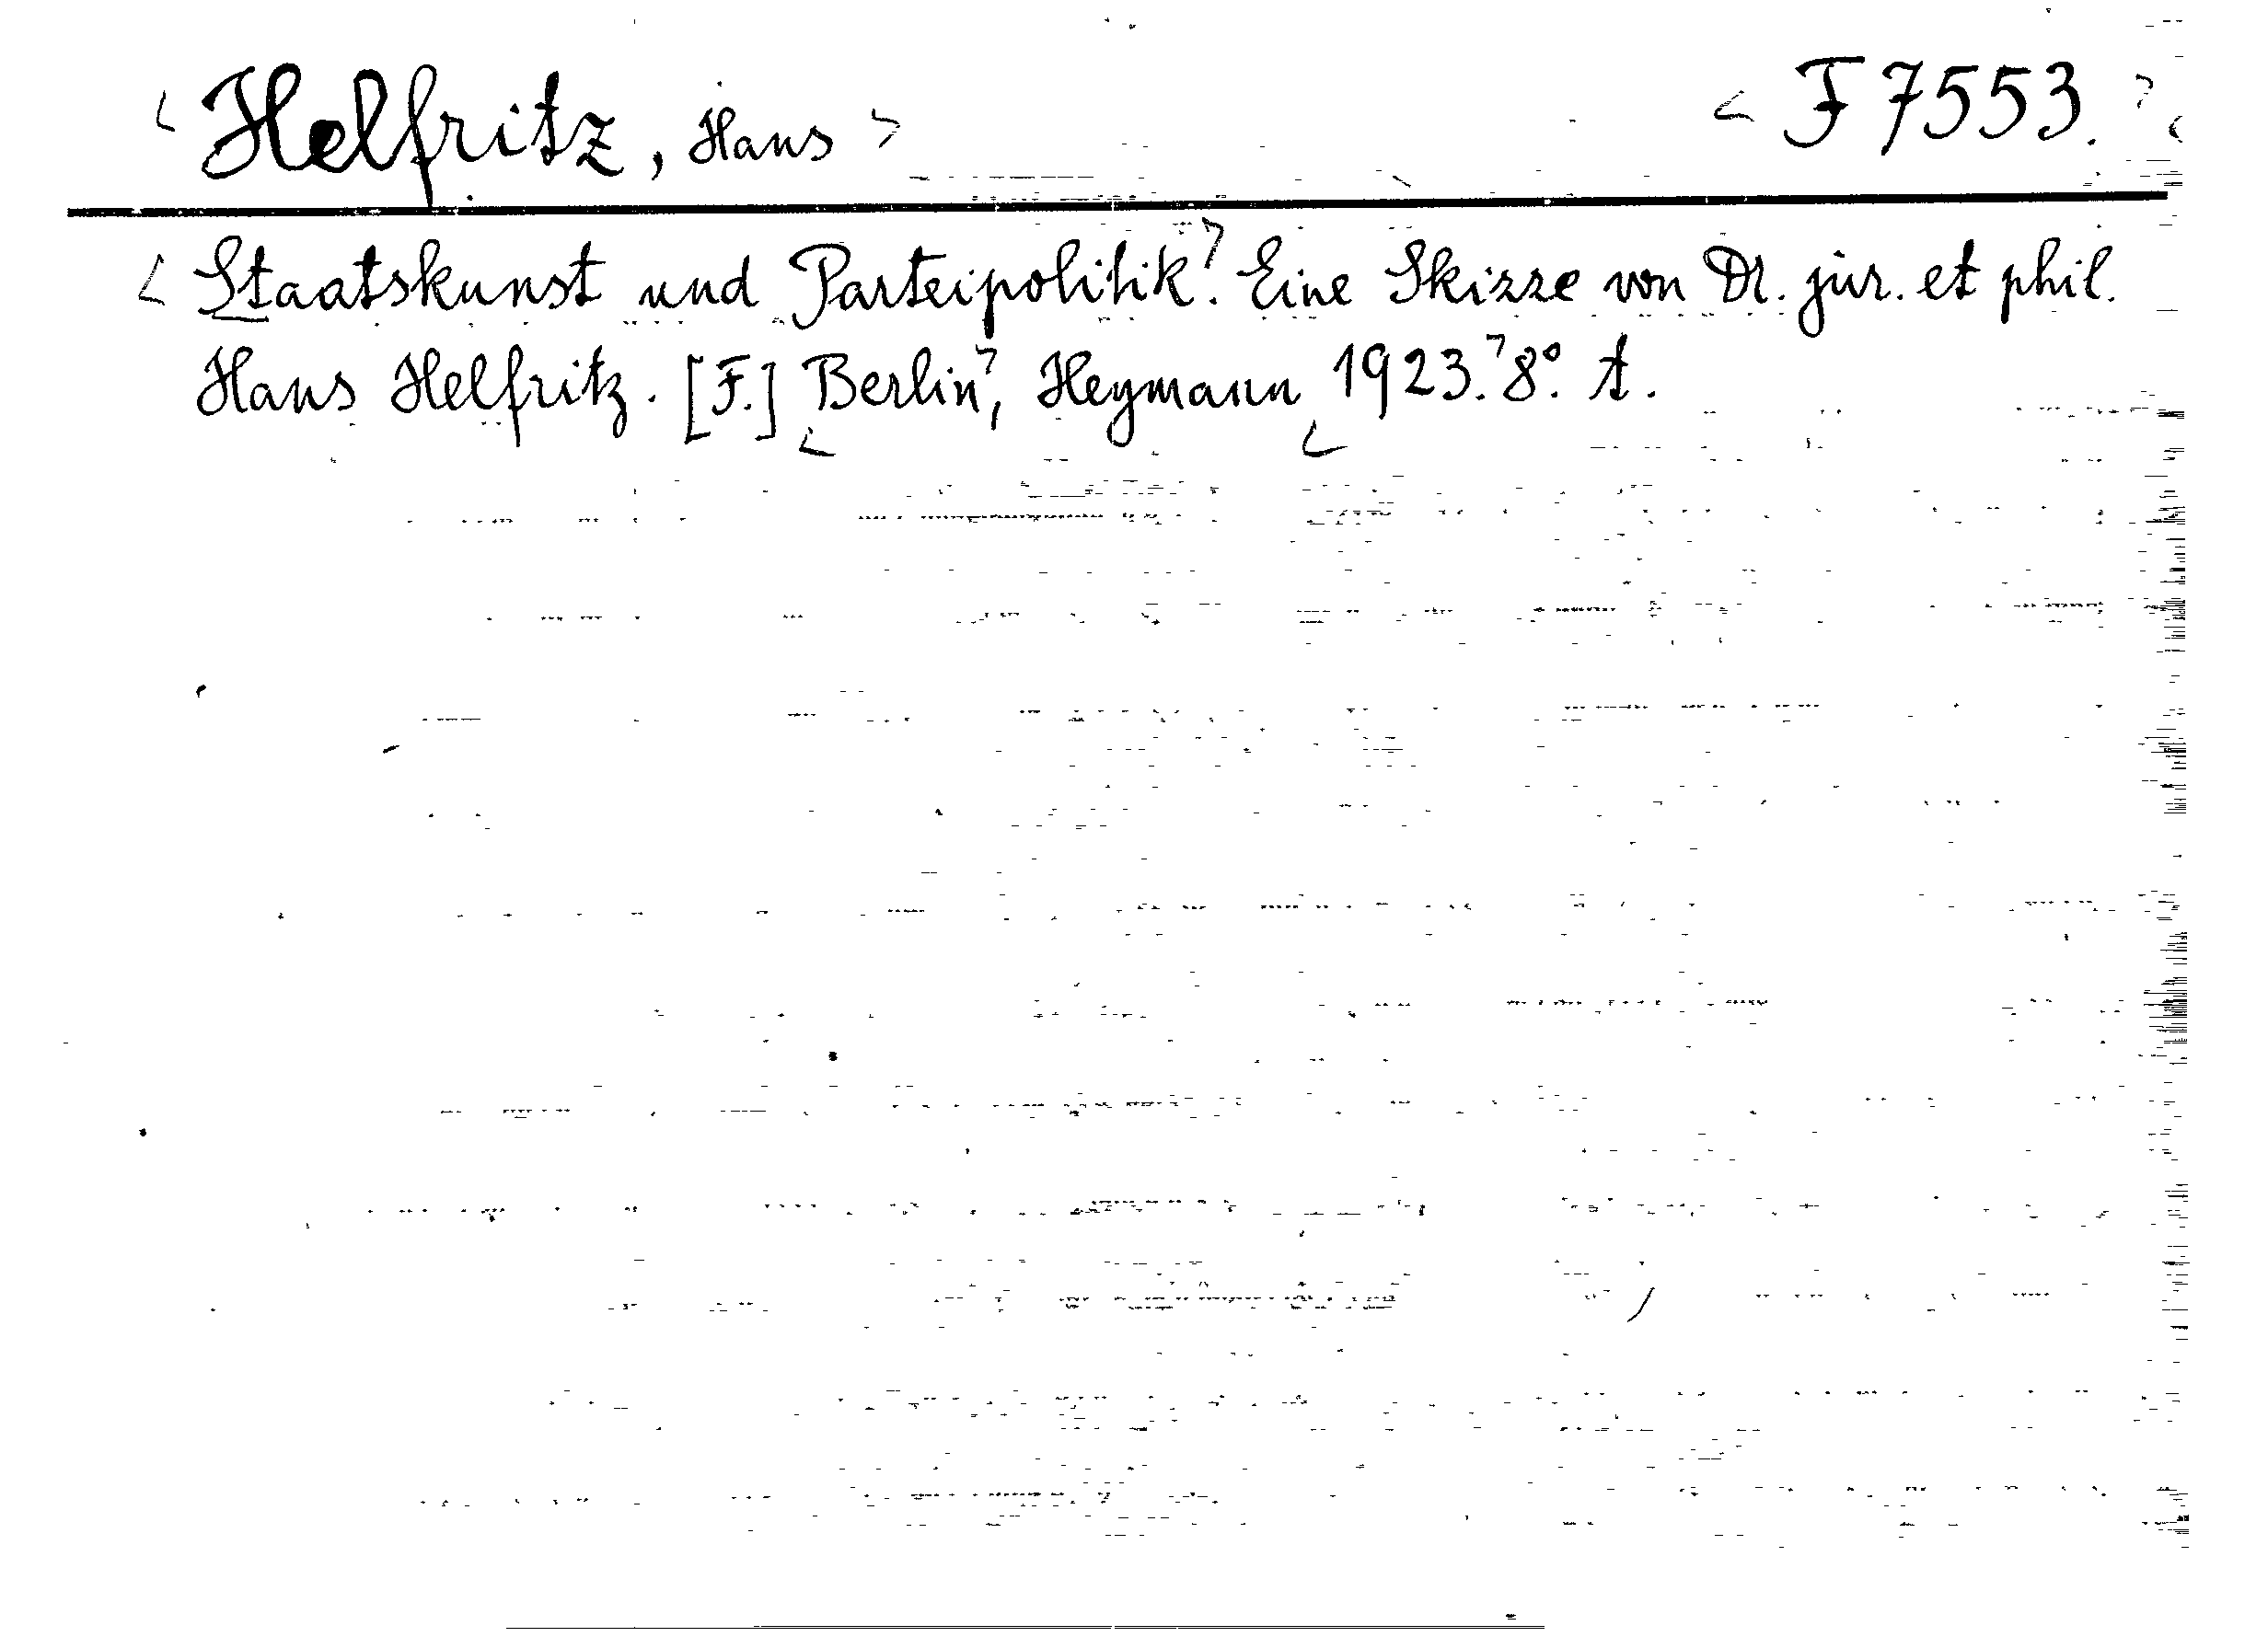 Helfritz, Hans F 7553.
Staatskunst und Parteipolitik. Eine Skizze von Dr. jur. et phil.
Hans Helfritz. [F.] Berlin, Heymann 1923. 8°. t.